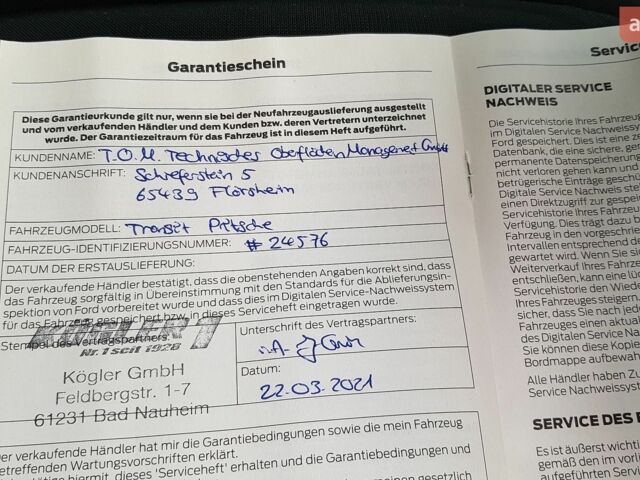 a
Garantieschein
Diese Garantieurkunde gilt nur, wenn sie bei der Neufahrzeugauslieferung ausgestellt
und vom verkaufenden Händler und dem Kunden bzw. deren Vertretern unterzeichnet
wurde. Der Garantiezeitraum für das Fahrzeug ist in diesem Heft aufgeführt.
KUNDENNAME: T.O.M. Technisches Oberflächen Management GmbH
KUNDENANSCHRIFT: Schieferstein 5
65439 Flörsheim
FAHRZEUGMODELL: Transit Pritsche
FAHRZEUG-IDENTIFIZIERUNGSNUMMER: # 24576
DATUM DER ERSTAUSLIEFERUNG:
Der verkaufende Händler bestätigt, dass die obenstehenden Angaben korrekt sind, dass
das Fahrzeug sorgfältig in Übereinstimmung mit den Standards für die Ablieferungsin-
spektion von Ford vorbereitet wurde und dass dies im Digitalen Service-Nachweissystem
für das Fahrzeug gespeichert bzw. in dieses Serviceheft eingetragen wurde.
Stempel des Vertragspartners:
KÖGLER 1
Nr. 1 seit 1928
Kögler GmbH
Feldbergstr. 1-7
61231 Bad Nauheim
Unterschrift des Vertragspartners:
Datum:
22.03.2021
Der verkaufende Händler hat mir die Garantiebedingungen sowie die mein Fahrzeug
betreffenden Wartungsvorschriften erklärt.
hiermit, dieses 'Serviceheft' erhalten und die Garantiebedingungen und
meinen gesetzlich
Service
DIGITALER SERVICE
NACHWEIS
Die Servicehistorie Ihres Fahrzeug
im Digitalen Service Nachweissys
Ford gespeichert. Dies ist eine ze
Datenbank, die eine sichere, ger
permanente Datenspeicherung
nicht verloren gehen kann und
betrügerische Einträge geschü
einen Direktzugriff zur gespei
Servicehistorie Ihres Fahrzeug
Verfügung. Dies trägt dazu b
Fahrzeug in den vorgeschrie
Intervallen entsprechend d
gewartet wird. Wenn Sie si
Weiterverkauf Ihres Fahrz
entschließen, kann eine lü
Servicehistorie den Wiede
Ihres Fahrzeuges steigern
sicher, dass Sie nach jede
Fahrzeuges einen aktuel
des Digitalen Service Na
Sie können diese Kopie
Bordmappe aufbewah
Alle Händler haben Zu
Service Nachweissys
SERVICE DES E
Es ist äußerst wichtig
gemäß den im vorli
aufgeführten Servi